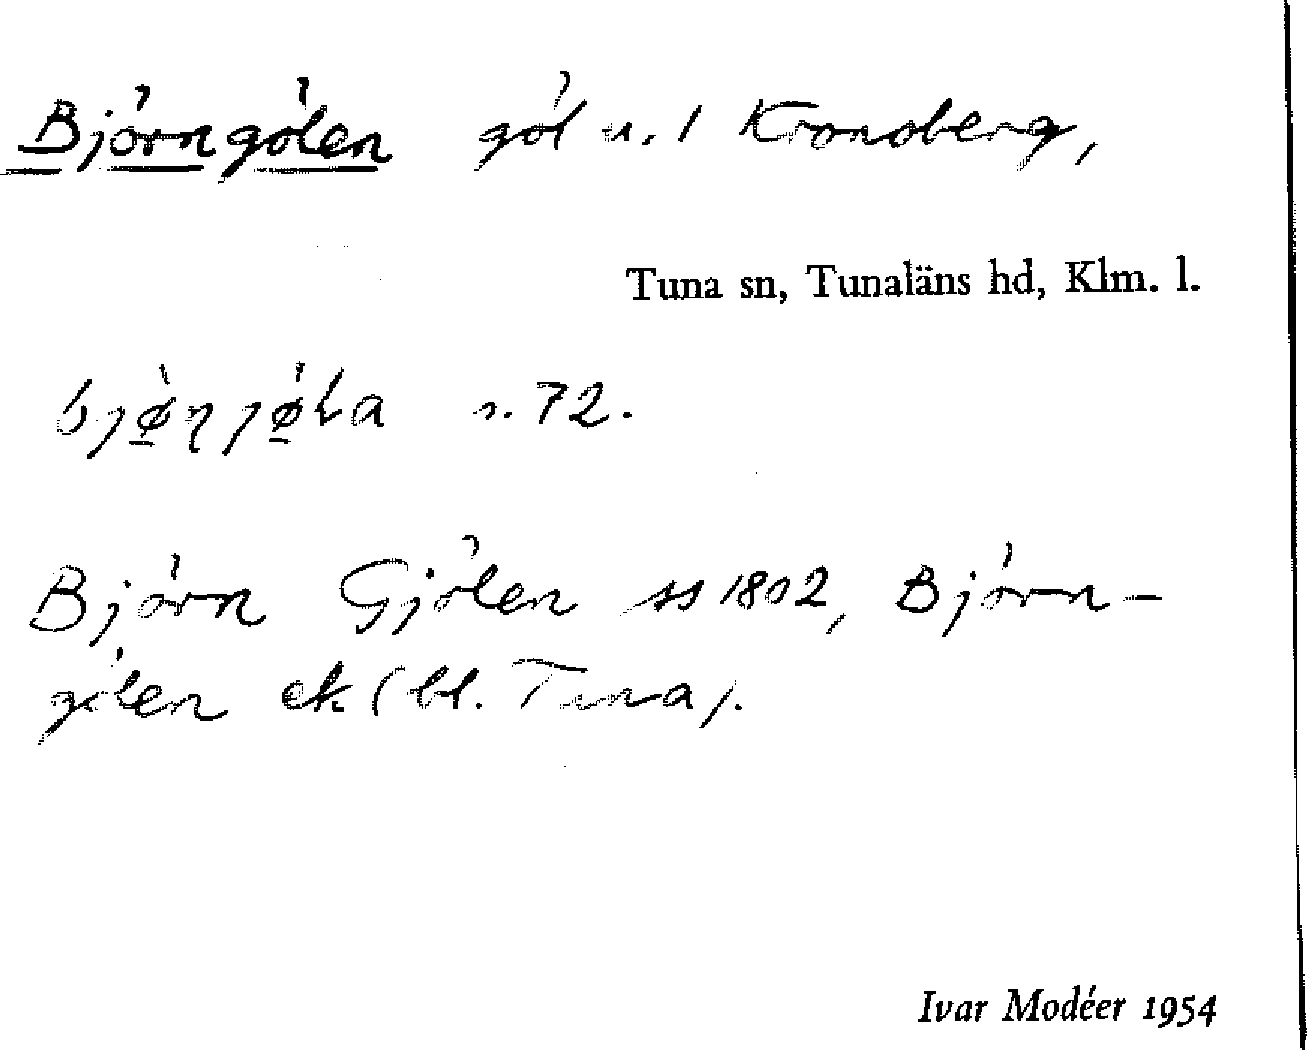 Björngölen göl u. 1 Kronoberg,
Tuna sn, Tunaläns hd, Klm. l.
s. 72.
Björn Gjölen ss 1802, Björn-
gölen ek (bl. Tuna).
Ivar Modéer 1954